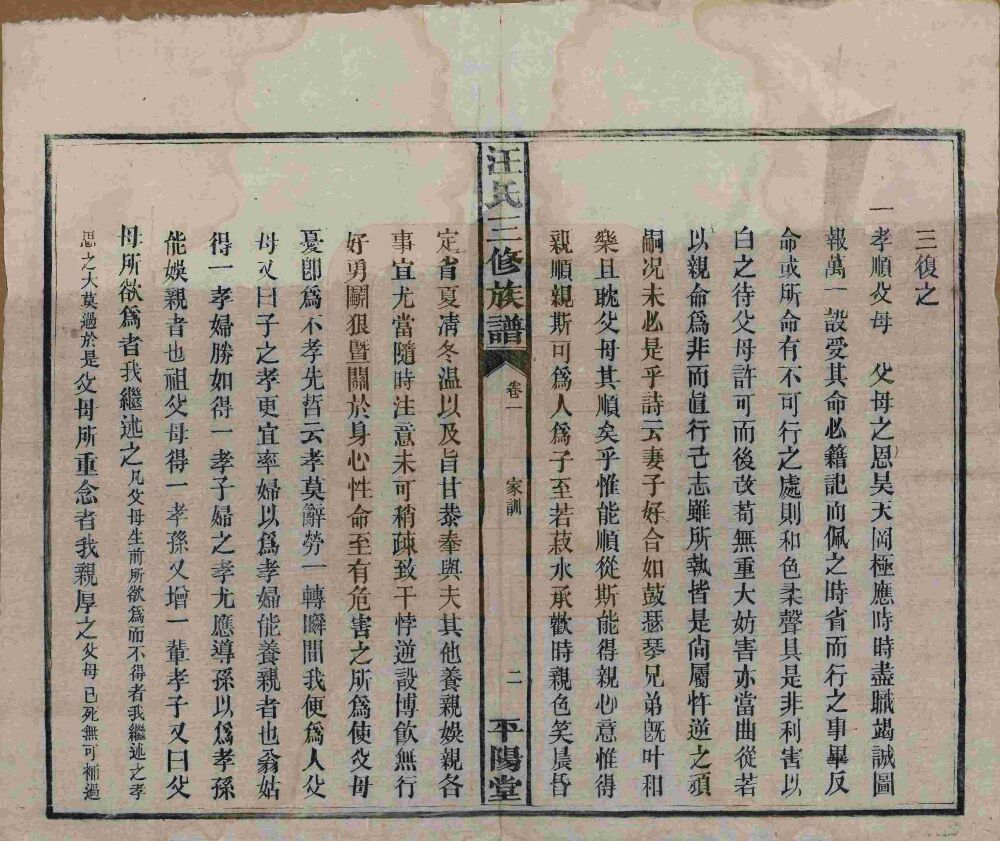 三復之
一孝順父母　父母之恩昊天罔極應時時盡職竭誠圖
報萬一設受其命必籍記而佩之時省而行之事畢反
命或所命有不可行之處則和色柔聲具是非利害以
白之待父母許可而後改苟無重大妨害亦當曲從若
以親命爲非而直行己志雖所執皆是尙屬忤逆之頑
嗣况未必是乎詩云妻子好合如鼓瑟琴兄弟旣叶和
樂且耽父母其順矣乎惟能順從斯能得親心意惟得
親順親斯可爲人爲子至若菽水承歡時親色笑晨昏
汪氏三修族譜
卷一
家訓
二
平陽堂
定省夏凊冬温以及旨甘恭奉與夫其他養親娛親各
事宜尤當隨時注意未可稍疎致干悖逆設博飲無行
好勇鬭狠曁關於身心性命至有危害之所爲使父母
憂卽爲不孝先哲云孝莫辭勞一轉瞬間我便爲人父
母又曰子之孝更宜率婦以爲孝婦能養親者也翁姑
得一孝婦勝如得一孝子婦之孝尤應導孫以爲孝孫
能娛親者也祖父母得一孝孫又增一輩孝子又曰父
母所欲爲者我繼述之凡父母生前所欲爲而不得者我繼述之孝
思之大莫過於是父母所重念者我親厚之父母已死無可補過